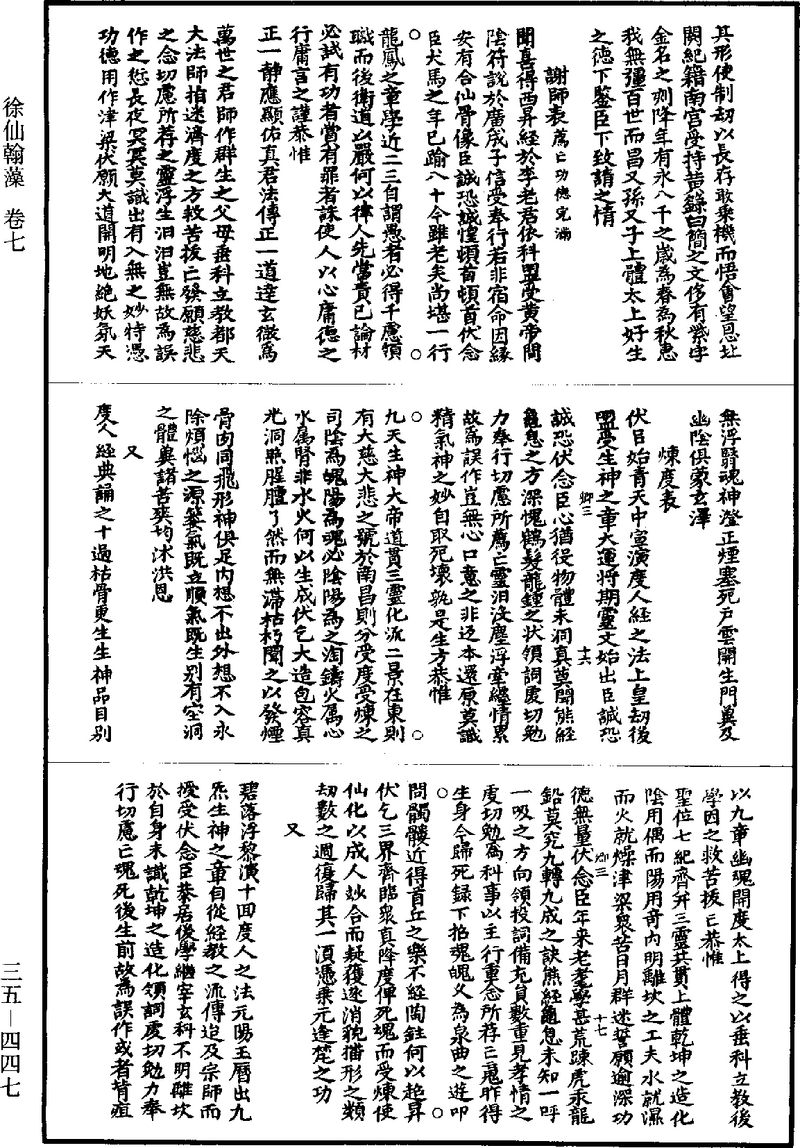 徐仙翰藻　卷七
三五—四四七
其形使制劫以長存敢乘機而悟會望恩址
闕紀籍南宮受持黃錄曰簡之文侈有紫字
金名之刿降年有永八千之歲為春為秋惠
我無彊百世而昌又孫又子上體太上好生
之德下鑒臣下致請之情
謝師表薦亡功德完滿
聞喜得西昇經於李老君依科盟受黃帝問
陰符說於廣成子信受奉行若非宿命因緣
安有合仙骨像臣誠恐誠惶頓首頓首伏念
臣犬馬之年已踰八十今雖老矣尚堪一行
○　○
龍鳳之章學近二三自謂愚者必得千慮領
職而後衛道以嚴何以律人先當責已論材
必試有功者當有罪者誅使人以心庸德之
行庸言之謹恭惟
正一静應顯佑真君法傳正一道達玄微為
萬世之君師作群生之父母垂科立教都天
大法師指迷濟度之方救苦拔亡發願慈悲
之念切慮所荐之靈浮生汨汨豈無故為誤
作之愆長夜冥冥莫識出有入無之妙特憑
功德用作津梁伏願大道開明地絕妖氛天
無浮翳魂神澄正煙塞死户雲開生門冀及
幽陰俱蒙玄澤
煉度表
伏目始青天中宣演度人經之法上皇劫後
盟受生神之章大運將期靈文始出臣誠恐
卿三　十六
誠恐伏念臣心猶役物體未洞真莫閑熊經
龜息之方深愧鶴髮龍鍾之状領詞虔切勉
力奉行切慮所薦亡靈汨没塵浮牽纏情累
故為誤作豈無心口意之非返本還原莫識
精氣神之妙自取死壞孰是生方恭惟
○　○
九天生神大帝道貫三靈化流二景在東則
有大慈大悲之號於南昌則分受度受煉之
司陰為魄陽為魂必陰陽為之淘鑄火属心
水属腎非水火何以生成伏乞大造包容真
光洞照腥膻了然而無滯枯朽聞之以發煙
骨肉同飛形神俱足内想不出外想不入永
除煩惱之源築氣既立順氣既生别有空洞
之體異諸苦爽均沐洪恩
又
度人經典誦之十過枯骨更生生神品目别
以九章幽魂開度太上得之以垂科立教後
學因之救苦拔亡恭惟
聖位七紀齊并三靈共貫上體乾坤之造化
陰用偶而陽用奇内明離坎之工夫水就濕
而火就燥津梁衆苦日月群迷誓願逾深功
卿三　十七
德無量伏念臣年来老耄學甚荒踈虎汞龍
鉛莫究九轉九成之訣熊經龜息未知一呼
一吸之方向領投詞備充員數重見孝情之
虔切勉為科事以主行重念所荐亡䰟昨得
生身今歸死録下招魂魄义為泉曲之遊叩
○　○
問髑髏近得首丘之樂不經陶鈺何以超昇
伏乞三界齊臨衆真降度俾死魂而受煉使
仙化以成人妙合而疑獲逐消貌猫形之類
劫數之週復歸其一須憑乘元逢楚之功
又
碧落浮黎演十回度人之法元陽玉曆出九
炁生神之章自從經教之流傳迨及宗師而
授受伏念臣蓁居後學繼宰玄科不明離坎
於自身未識乾坤之造化領詞虔切勉力奉
行切慮亡魂死後生前故為誤作或者膏疽